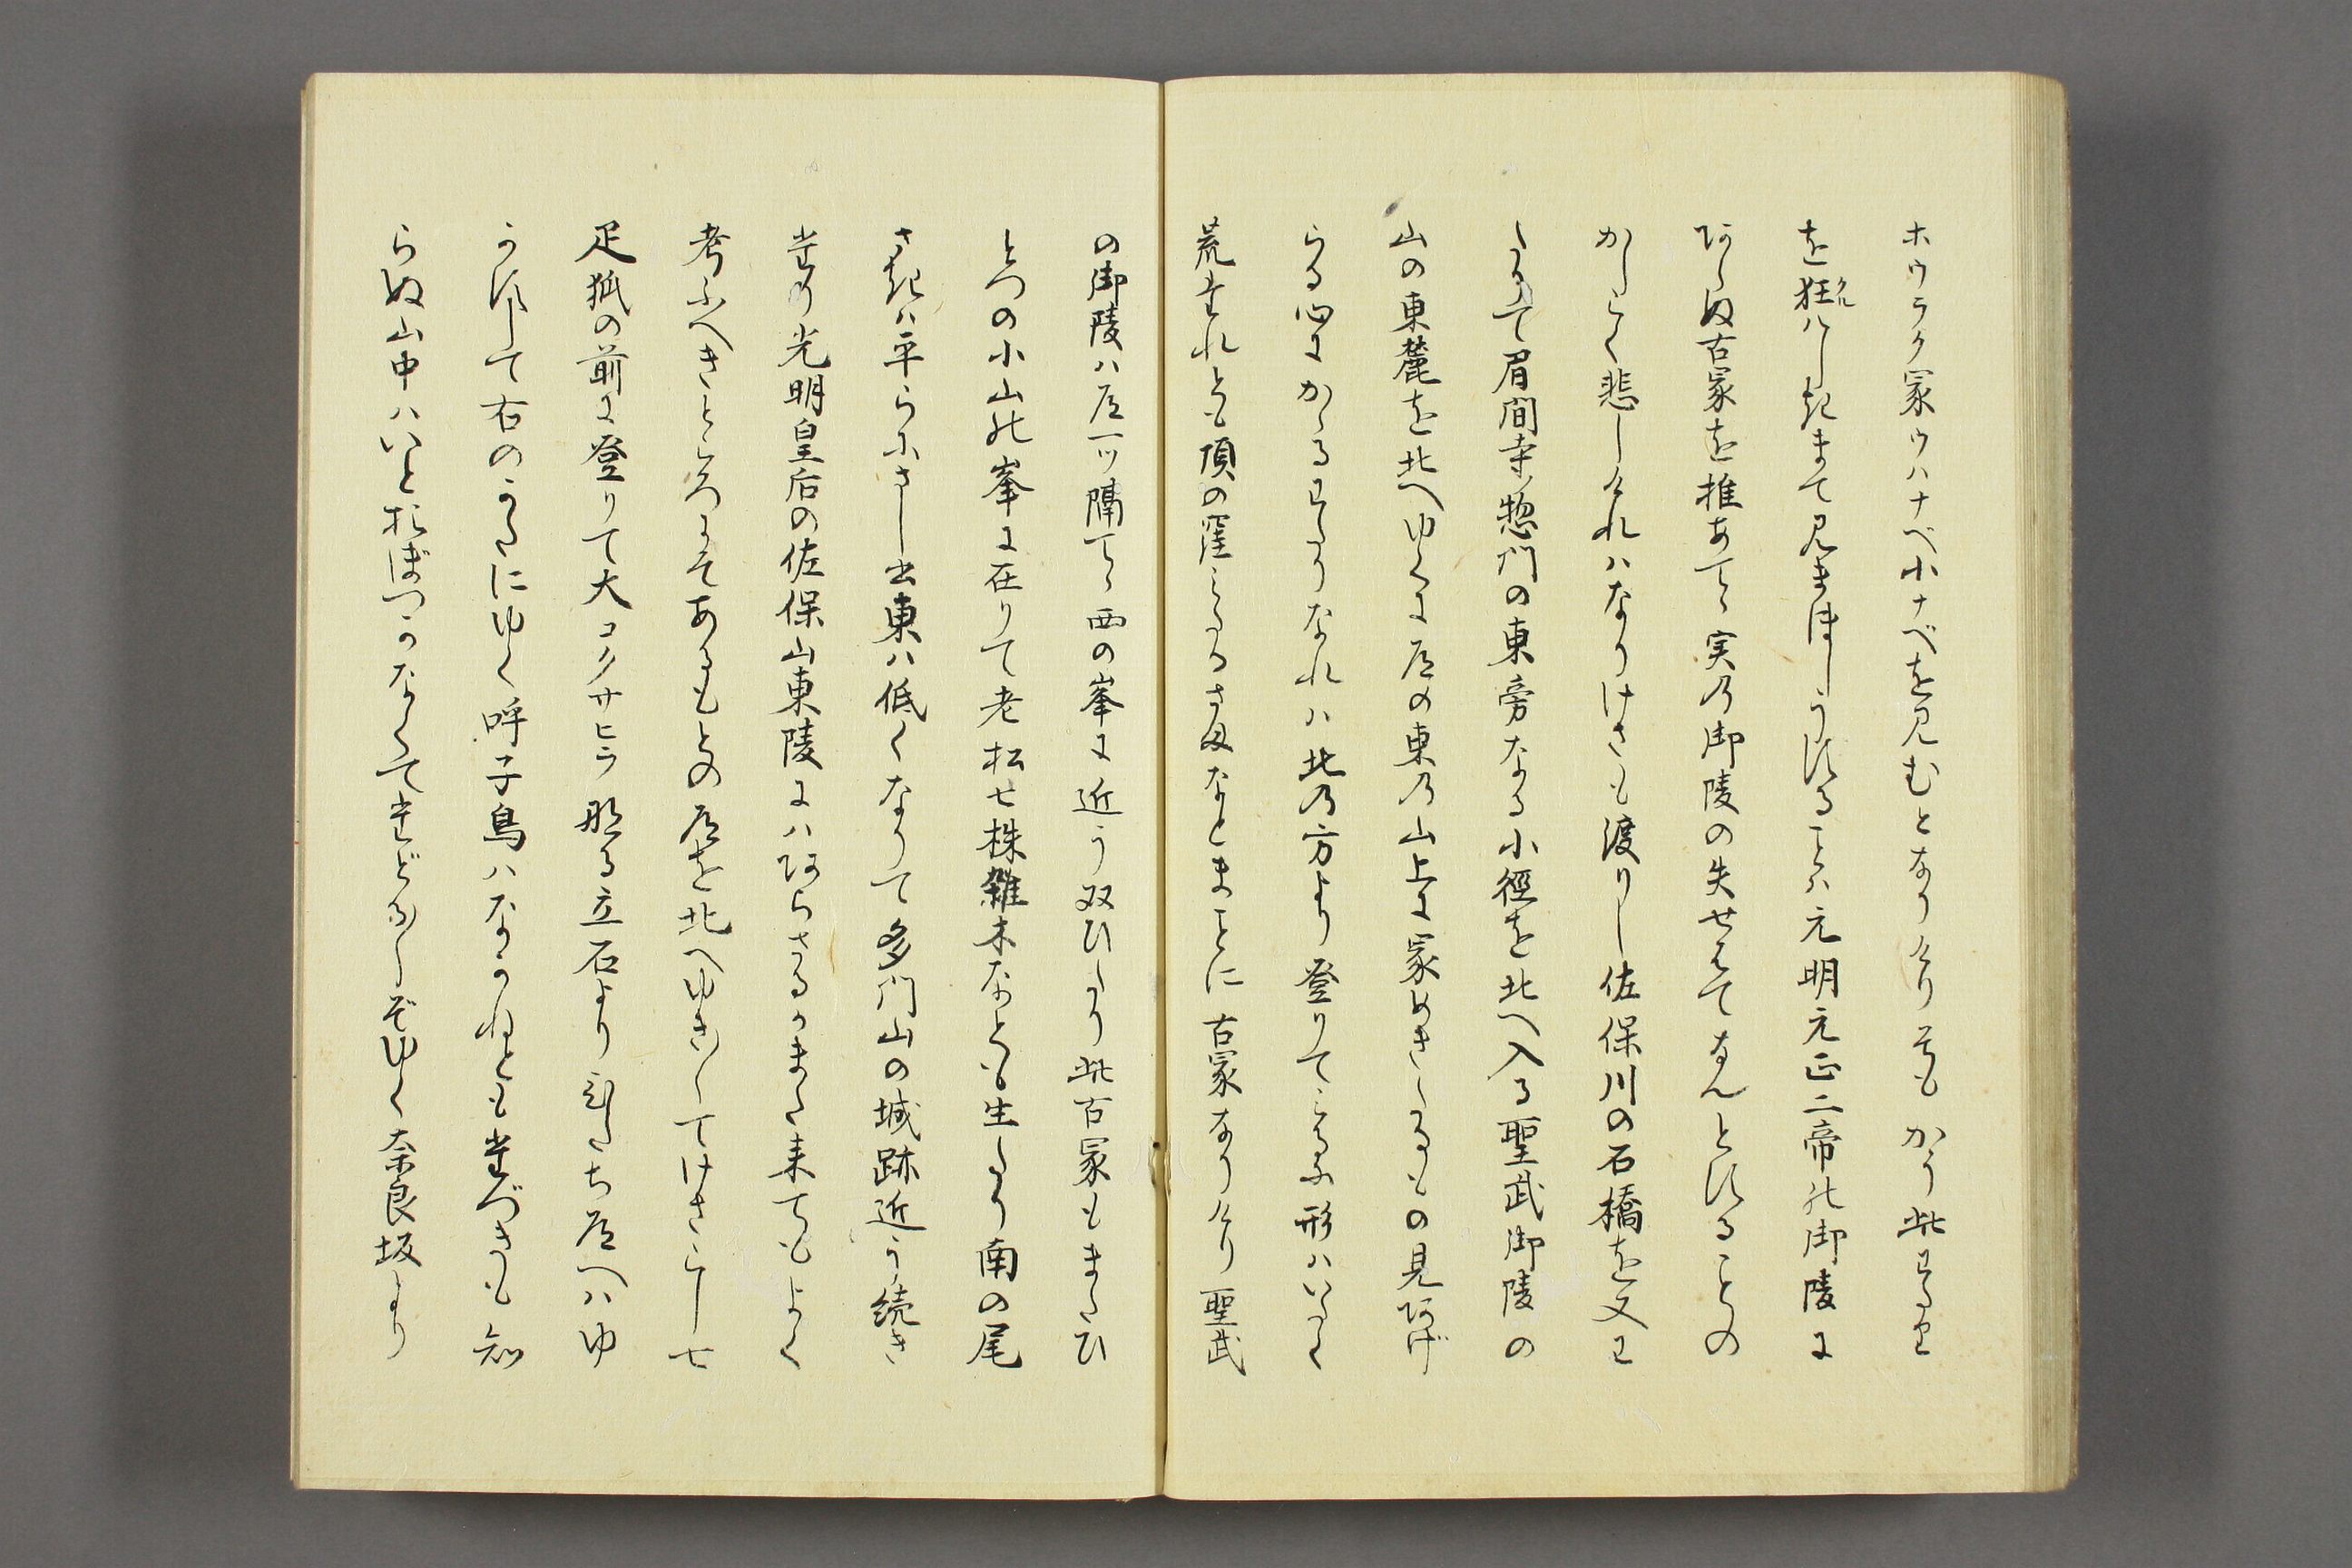 ホウラク冢ウハナベ小ナベを見むとなりけりそもかう此わたり
を狂クルハしきまて見まほしうすることは元明元正二帝の御陵に
あらぬ古冢を推あてゝ実の御陵の失せはてなんとすることの
かしこく悲しけれはなりけさも渡りし佐保川の石橋を又わ
たりて眉間寺惣門の東旁なる小徑を北へ入る聖武御陵の
山の東麓を北へゆくに道の東の山上に冢めきたるもの見あげ
らる心にかゝるわたりなれは北の方より登りてみるに形はいたく
荒たれとも頂の窪みたるさまなとまことに古冢なりけり聖武
の御陵は道一ツ隔てゝ西の峯に近う双ひたり此古冢もまたひ
とつの小山の峯に在りて老松七株雑木なとも生たり南の尾
さきは平らにさし出東は低くなりて多門山の城跡近う続き
たり光明皇后の佐保山東陵にはあらさるかまた来てもよく
考ふへきところにそあるもとの道を北へゆき〱てけさこし七
疋狐の前に登りて大コクサヒラ那る立石より引たち道へはゆ
かすして右のかたにゆく呼子鳥はなかねともたづきも知
らぬ山中はいとおぼつかなくてたどる〱ぞゆく奈良坂より